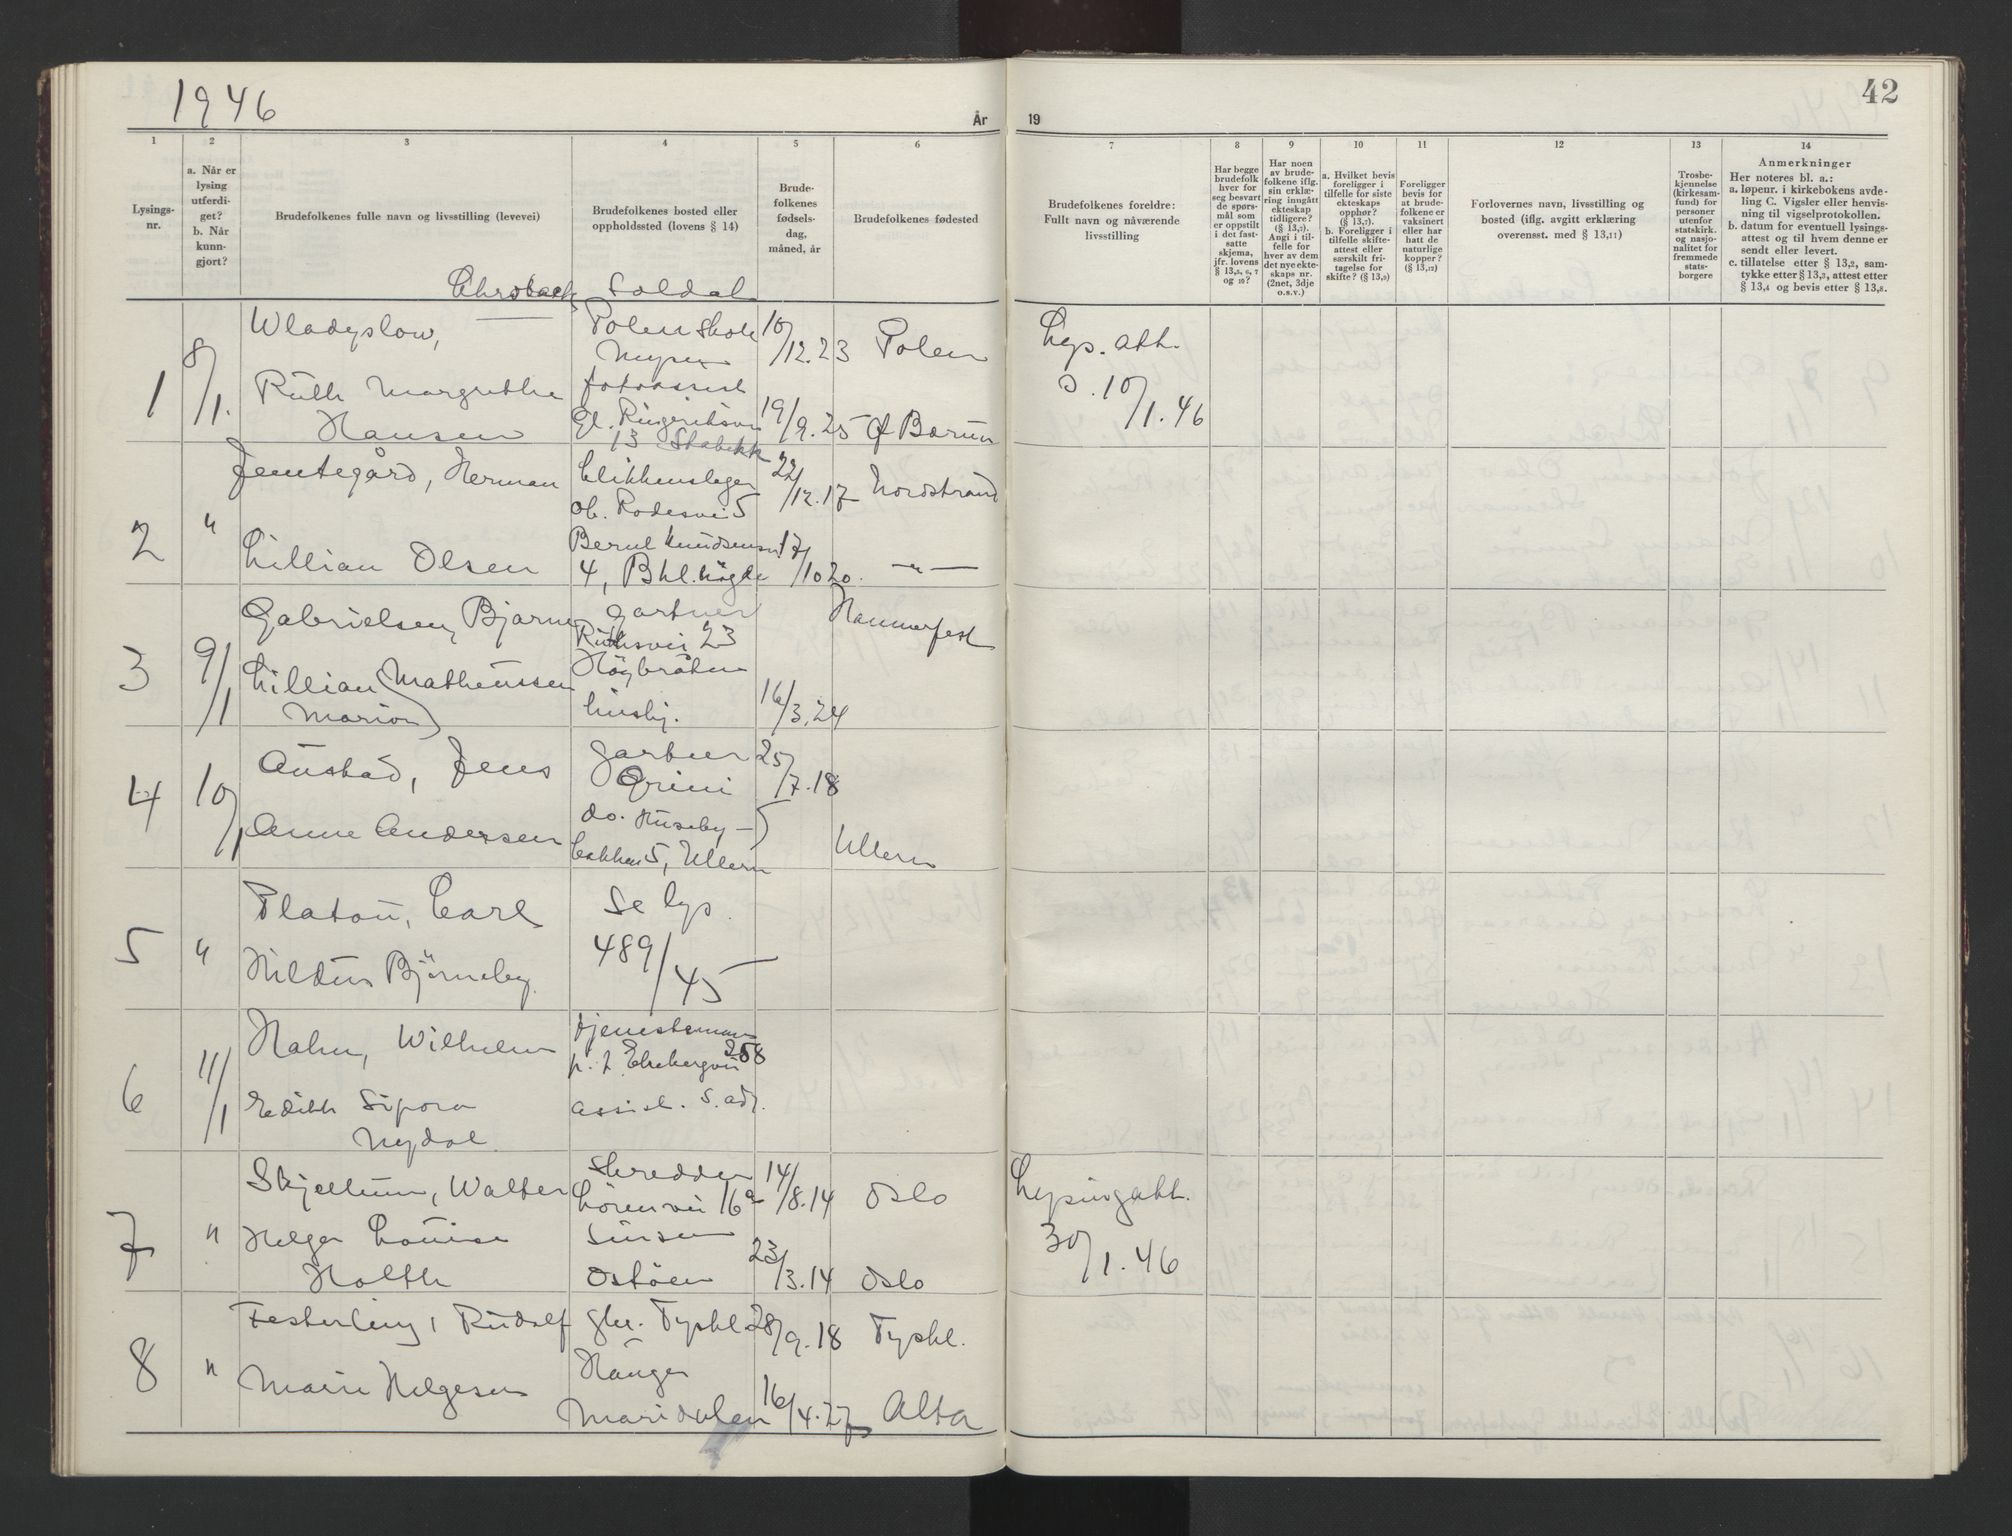 1946
År
19
42
1
2
3
4
5
6
7
8
9
10
11
12
13
14
Lysings-
nr.
a. Når er
lysing
utferdi-
get?
b. Når
kunn-
gjort?
Brudefolkenes fulle navn og livsstilling (levevei)
Brudefolkenes bosted eller
oppholdssted (lovens § 14)
Brude-
folkenes
fødsels-
dag,
måned, år
Brudefolkenes fødested
Brudefolkenes foreldre:
Fullt navn og nåværende
livsstilling
Har begge
brudefolk
hver for
seg besvart
de spørs-
mål som
er oppstilt
i det fast-
satte
skjema,
jfr. lovens
§ 13,5, 6, 7
og 10?
Har noen
av brude-
folkene iflg.
sin erklæ-
ring inngått
ekteskap
tidligere?
(§ 13,7).
Angi i til-
felle for
hver av dem
det nye ekte-
skaps nr.
(2net, 3dje
o.s.v.)
a. Hvilket bevis
foreligger i
tilfelle for siste
ekteskaps
opphør?
(§ 13,7).
b. Foreligger i
tilfelle skifte-
attest eller
særskilt fri-
tagelse for
skifte? (§ 13,9)
Foreligger
bevis for
at brude-
folkene er
vaksinert
eller har
hatt de
naturlige
kopper?
(§ 13,12)
Forlovernes navn, livsstilling og
bosted (iflg. avgitt erklæring
overensst. med § 13,11)
Trosbe-
kjennelse
(kirkesam-
fund) for
personer
utenfor
statskirk.
og nasjo-
nalitet for
fremmede
stats-
borgere
Anmerkninger
Her noteres bl. a.:
a. løpenr. i kirkebokens avde-
ling C. Vigsler eller henvis-
ning til vigselprotokollen.
b. datum for eventuell lysings-
attest og til hvem denne er
sendt eller levert.
c. tillatelse etter § 13,2, sam-
tykke etter § 13,3, attest etter
§ 13,4 og bevis etter § 13,8.
Chroback Soldat
1 8/1. Wladyslow, Polen Skole 10/12.23 Polen Lys. att.
0. 10/1.46
Ruth Margrethe
Hansen Gl. Ringeriksvei 19/9.25 Ø Bærum
13 Stabekk
2 " Jemtegård, Herman blikkenslager 22/12.17 Nordstrand
ob. Rodesvei 5
Lillian Olsen Bernt Knudsensv 17/10 20. —"—
4, Bkl.høgda
3 9/1 Gabrielsen, Bjarne gartner Hammerfest
Ruthsvei 23
Høybråten
Lillian Matheussen
Marion husbj. 16/3.24
4 10/1 Austad, Jens gartner 25/7.18
Grini
Anne Andersen do. Huseby-
bakken 5, Ullern Ullern
5 " Platou, Carl Se lys.
489/45
Hildur Björneby.
6 11/1 Hahn, Wilhelm tjenestemann
258
Edith Sipora assist. s. adr.
Nydal
7 " Skjellum, Walter skredder 14/8.14 Oslo Lysingatt.
30/1.46
Lörenvei 16a
Helga Louise Sinsen
Holth Ostöen 23/3.14 Oslo
8 " Festerling, Rudolf Tyskl. 28/9.18 Tyskl.
Hauger
Marie Helgesen
Maridalen 16/4.27 Alta